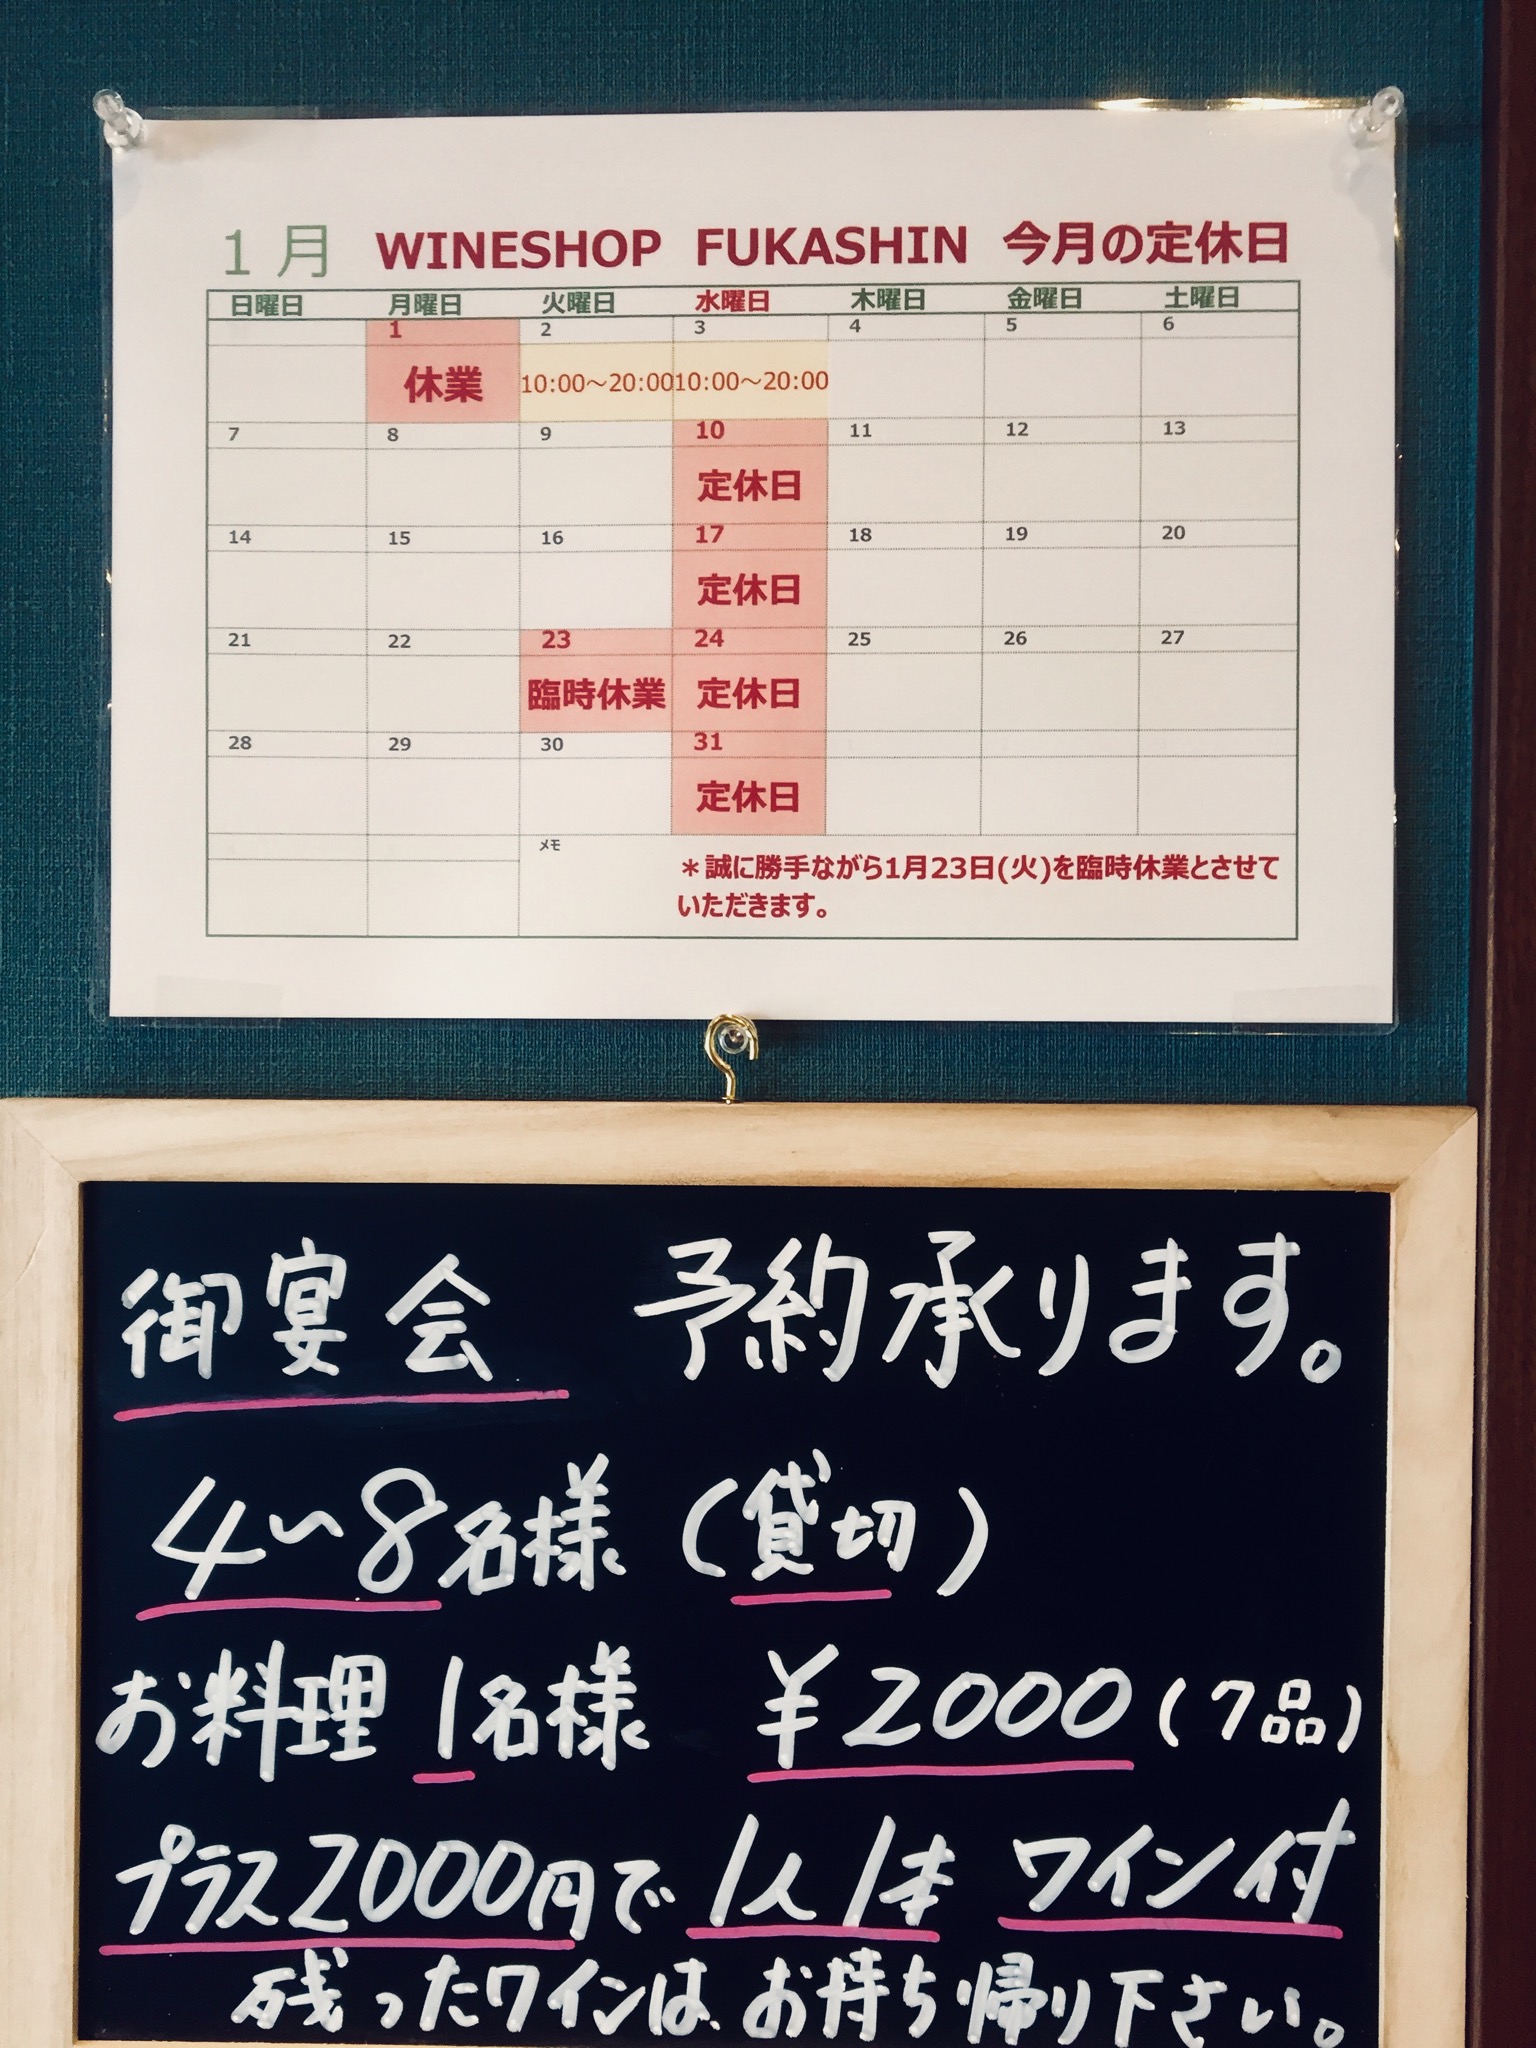 1 月 WINESHOP FUKASHIN 今月の定休日
日曜日 月曜日 火曜日 水曜日 木曜日 金曜日 土曜日
1 2 3 4 5 6
休業 10:00～20:00 10:00～20:00
7 8 9 10 11 12 13
定休日
14 15 16 17 18 19 20
定休日
21 22 23 24 25 26 27
臨時休業 定休日
28 29 30 31
定休日
メモ
＊誠に勝手ながら1月23日(火)を臨時休業とさせて
いただきます。
御宴会 予約承ります。
4～8名様(貸切)
お料理 1名様 ¥2000(7品)
プラス2000円で 1人1本 ワイン付
残ったワインは、お持ち帰り下さい。